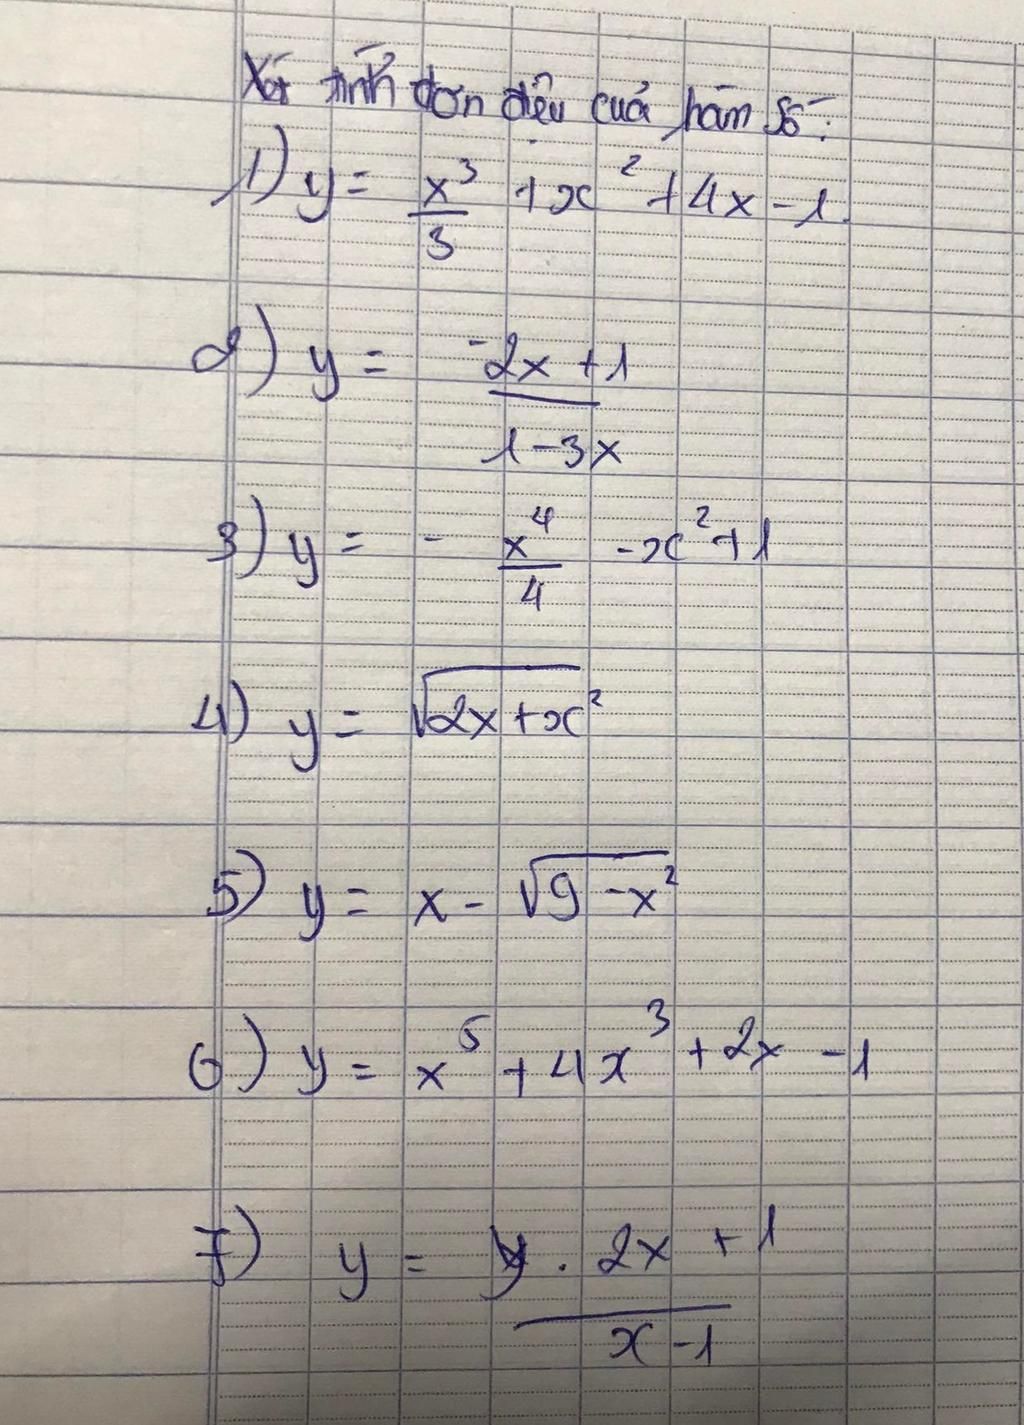 Xét tính đơn điệu của hàm số:
1) y = x³/3 + x² + 4x - 1
2) y = (-2x + 1)/(1 - 3x)
3) y = - x⁴/4 - x² + 1
4) y = √(2x + x²)
5) y = x - √(9 - x²)
6) y = x⁵ + 4x³ + 2x - 1
7) y = (2x + 1)/(x - 1)